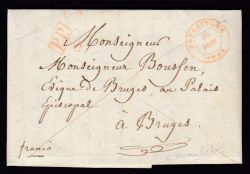 P.P.
Monseigneur
Monseigneur Boussen,
Evêque de Bruges, au Palais
Episcopal
à Bruges.
franco